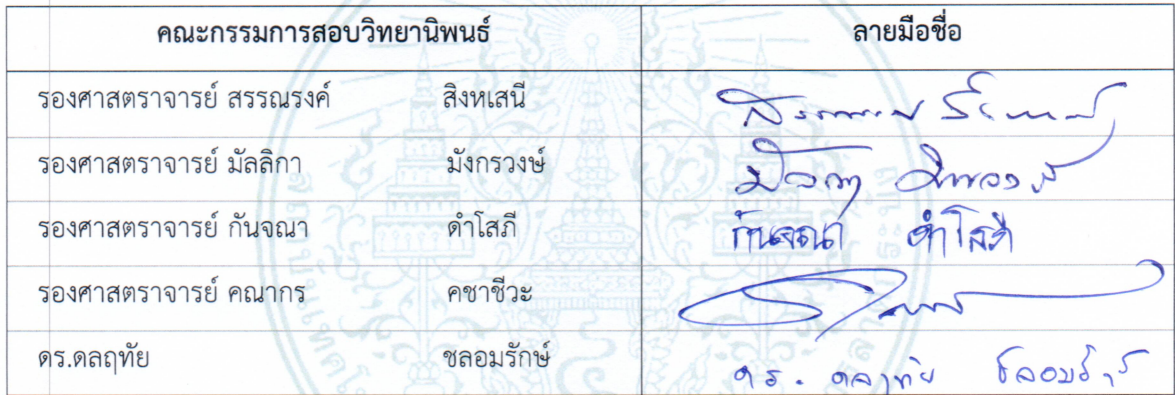 คณะกรรมการสอบวิทยานิพนธ์ ลายมือชื่อ
รองศาสตราจารย์ สรรณรงค์ สิงหเสนี
รองศาสตราจารย์ มัลลิกา มังกรวงษ์
รองศาสตราจารย์ กันจณา ดำโสภี กันจณา ดำโสภี
รองศาสตราจารย์ คณากร คชาชีวะ
ดร.ดลฤทัย ชลอมรักษ์ ดร. ดลฤทัย ชลอมรักษ์